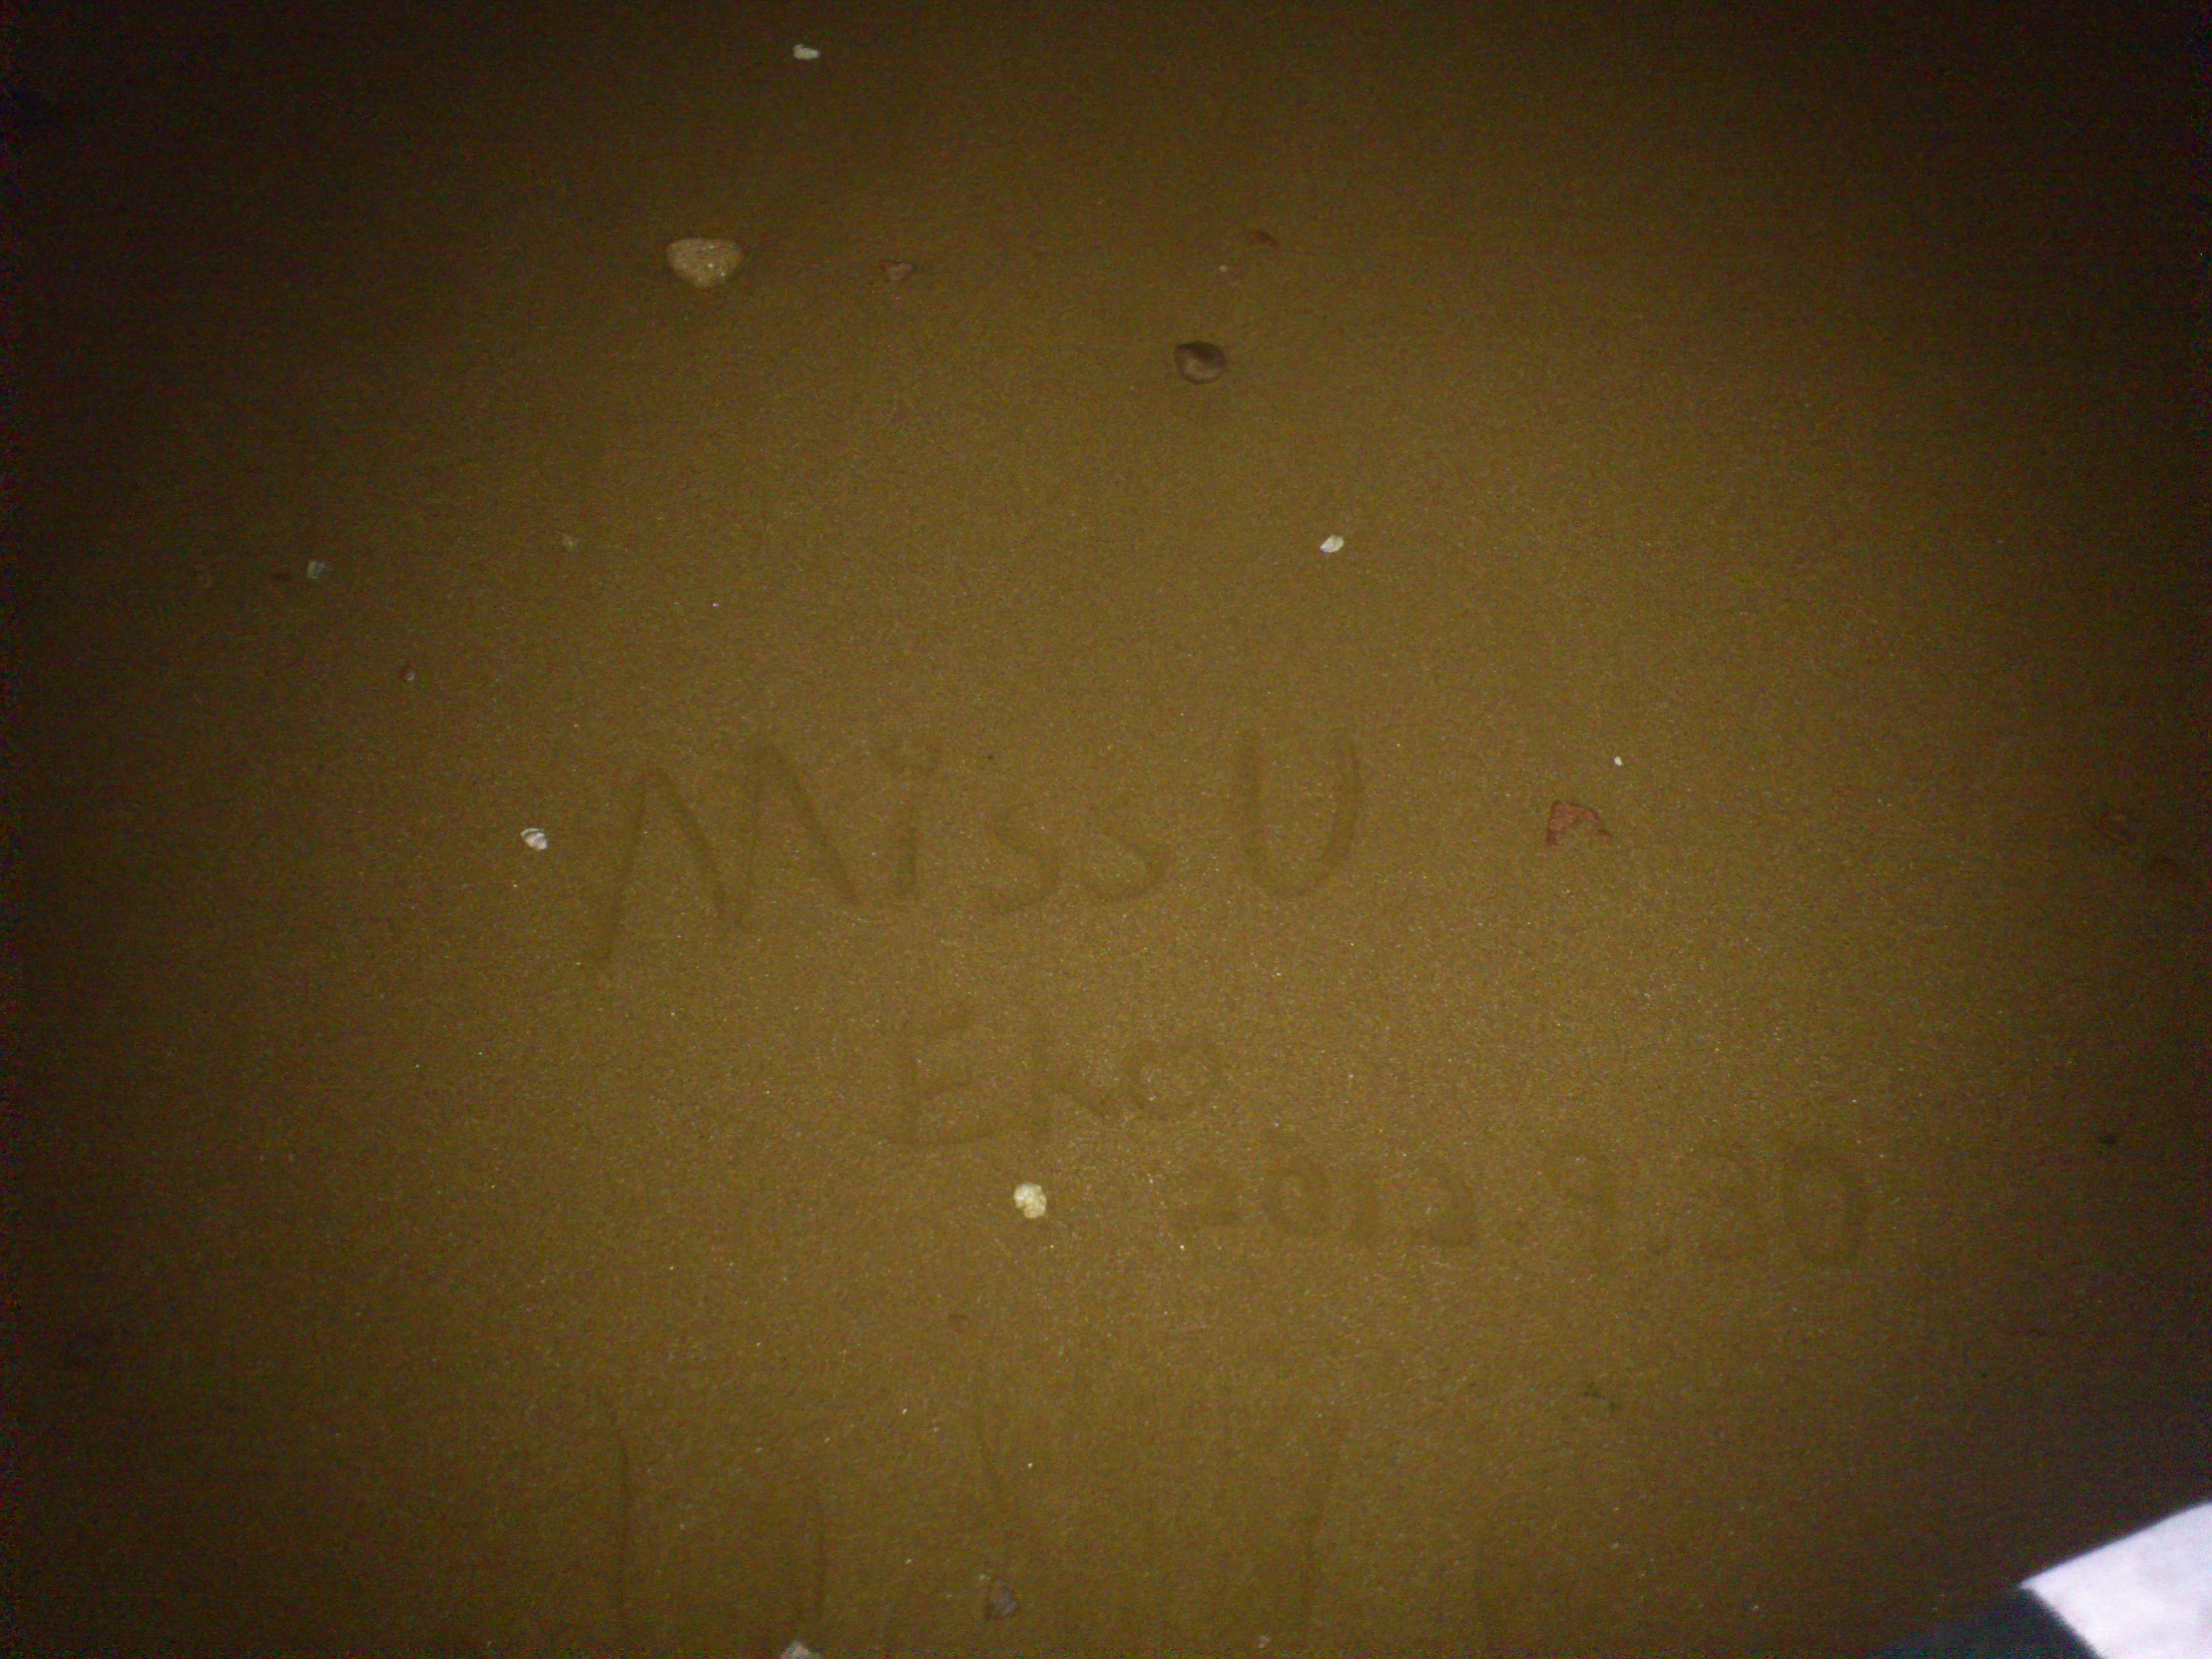 Miss U
Eko
2012.9.20